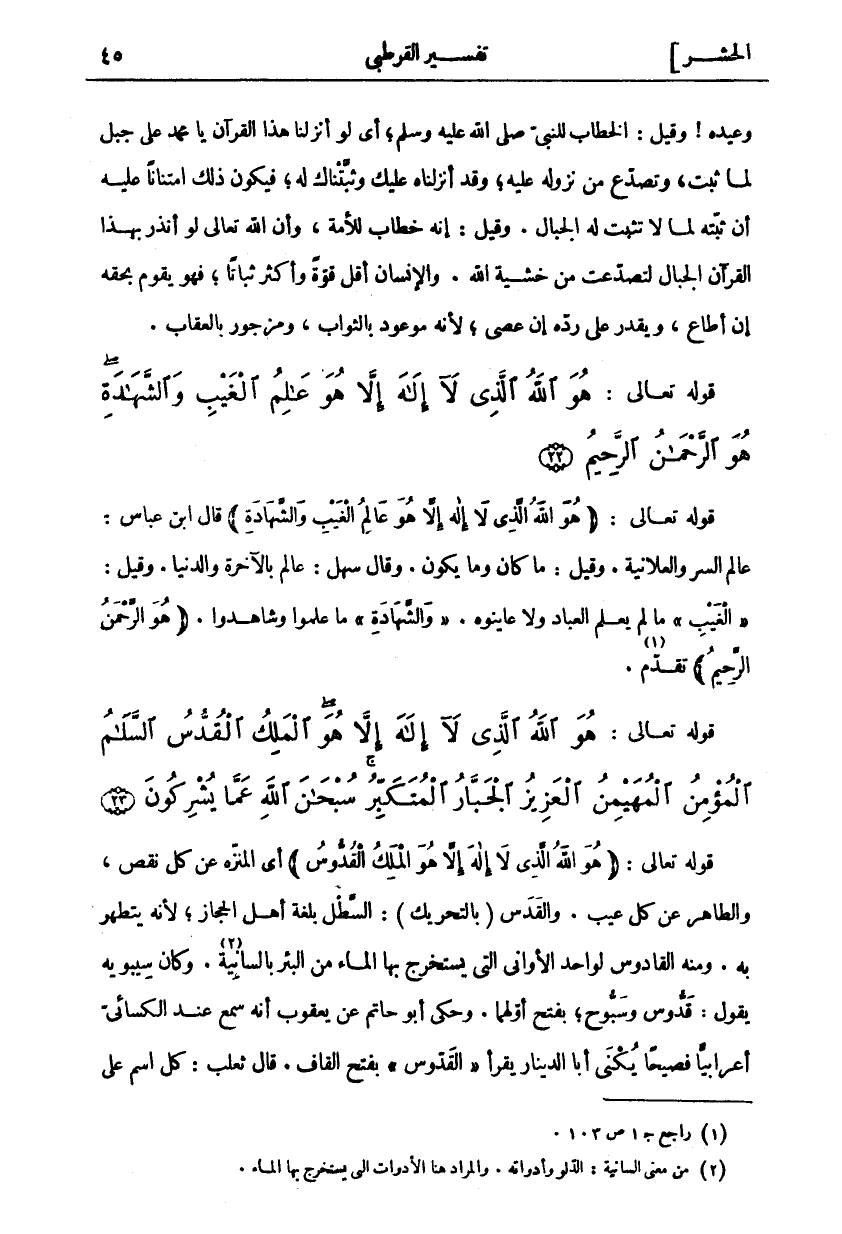 الحشر] تفسير القرطبي ٤٥
وعيده! وقيل: الخطاب للنبيّ صلى الله عليه وسلم؛ أى لو أنزلنا هذا القرآن يا محمد على جبل
لما ثبت، وتصدّع من نزوله عليه؛ وقد أنزلناه عليك وثبَّتْناك له؛ فيكون ذلك امتنانًا عليه
أن ثبّته لما لا تثبت له الجبال. وقيل: إنه خطاب للأمة، وأن الله تعالى لو أنذر بهذا
القرآن الجبال لتصدّعت من خشية الله. والإنسان أقل قوّةً وأكثر ثباتًا؛ فهو يقوم بحقه
إن أطاع، ويقدر على ردّه إن عصى؛ لأنه موعود بالثواب، ومزجور بالعقاب.
قوله تعالى: هُوَ ٱللَّهُ ٱلَّذِى لَآ إِلَٰهَ إِلَّا هُوَ عَٰلِمُ ٱلْغَيْبِ وَٱلشَّهَٰدَةِۖ
هُوَ ٱلرَّحْمَٰنُ ٱلرَّحِيمُ ﴿٢٢﴾
قوله تعالى: ﴿هُوَ اللهُ الَّذِى لَا إِلٰه إِلَّا هُوَ عَالِمُ الْغَيْبِ وَالشَّهَادَةِ﴾ قال ابن عباس:
عالم السر والعلانية. وقيل: ما كان وما يكون. وقال سهل: عالم بالآخرة والدنيا. وقيل:
« الْغَيْبِ » ما لم يعلم العباد ولا عاينوه. « وَالشَّهَادَةِ » ما علموا وشاهدوا. ﴿هُوَ الرَّحْمَنُ
الرَّحِيمُ﴾ تقدّم(١).
قوله تعالى: هُوَ ٱللَّهُ ٱلَّذِى لَآ إِلَٰهَ إِلَّا هُوَۖ ٱلْمَلِكُ ٱلْقُدُّوسُ ٱلسَّلَٰمُ
ٱلْمُؤْمِنُ ٱلْمُهَيْمِنُ ٱلْعَزِيزُ ٱلْجَبَّارُ ٱلْمُتَكَبِّرُۚ سُبْحَٰنَ ٱللَّهِ عَمَّا يُشْرِكُونَ ﴿٢٣﴾
قوله تعالى: ﴿هُوَ اللهُ الَّذِى لَا إِلٰهَ إِلَّا هُوَ الْمَلِكُ الْقُدُّوسُ﴾ أى المنزّه عن كل نقص،
والطاهر عن كل عيب. والقَدَس (بالتحريك): السَّطْل بلغة أهل الحجاز؛ لأنه يتطهر
به. ومنه القادوس لواحد الأوانى التى يستخرج بها الماء من البئر بالسانِية(٢). وكان سيبويه
يقول: قَدُّوس وسَبُّوح؛ بفتح أوّلهما. وحكى أبو حاتم عن يعقوب أنه سمع عند الكسائىّ
أعرابيًّا فصيحًا يُكْنَى أبا الدينار يقرأ « القَدّوس » بفتح القاف. قال ثعلب: كل اسم على
(١) راجع جـ ١ ص ١٠٣.
(٢) من معنى السانية: الدّلو وأدواته. والمراد هنا الأدوات التى يستخرج بها الماء.